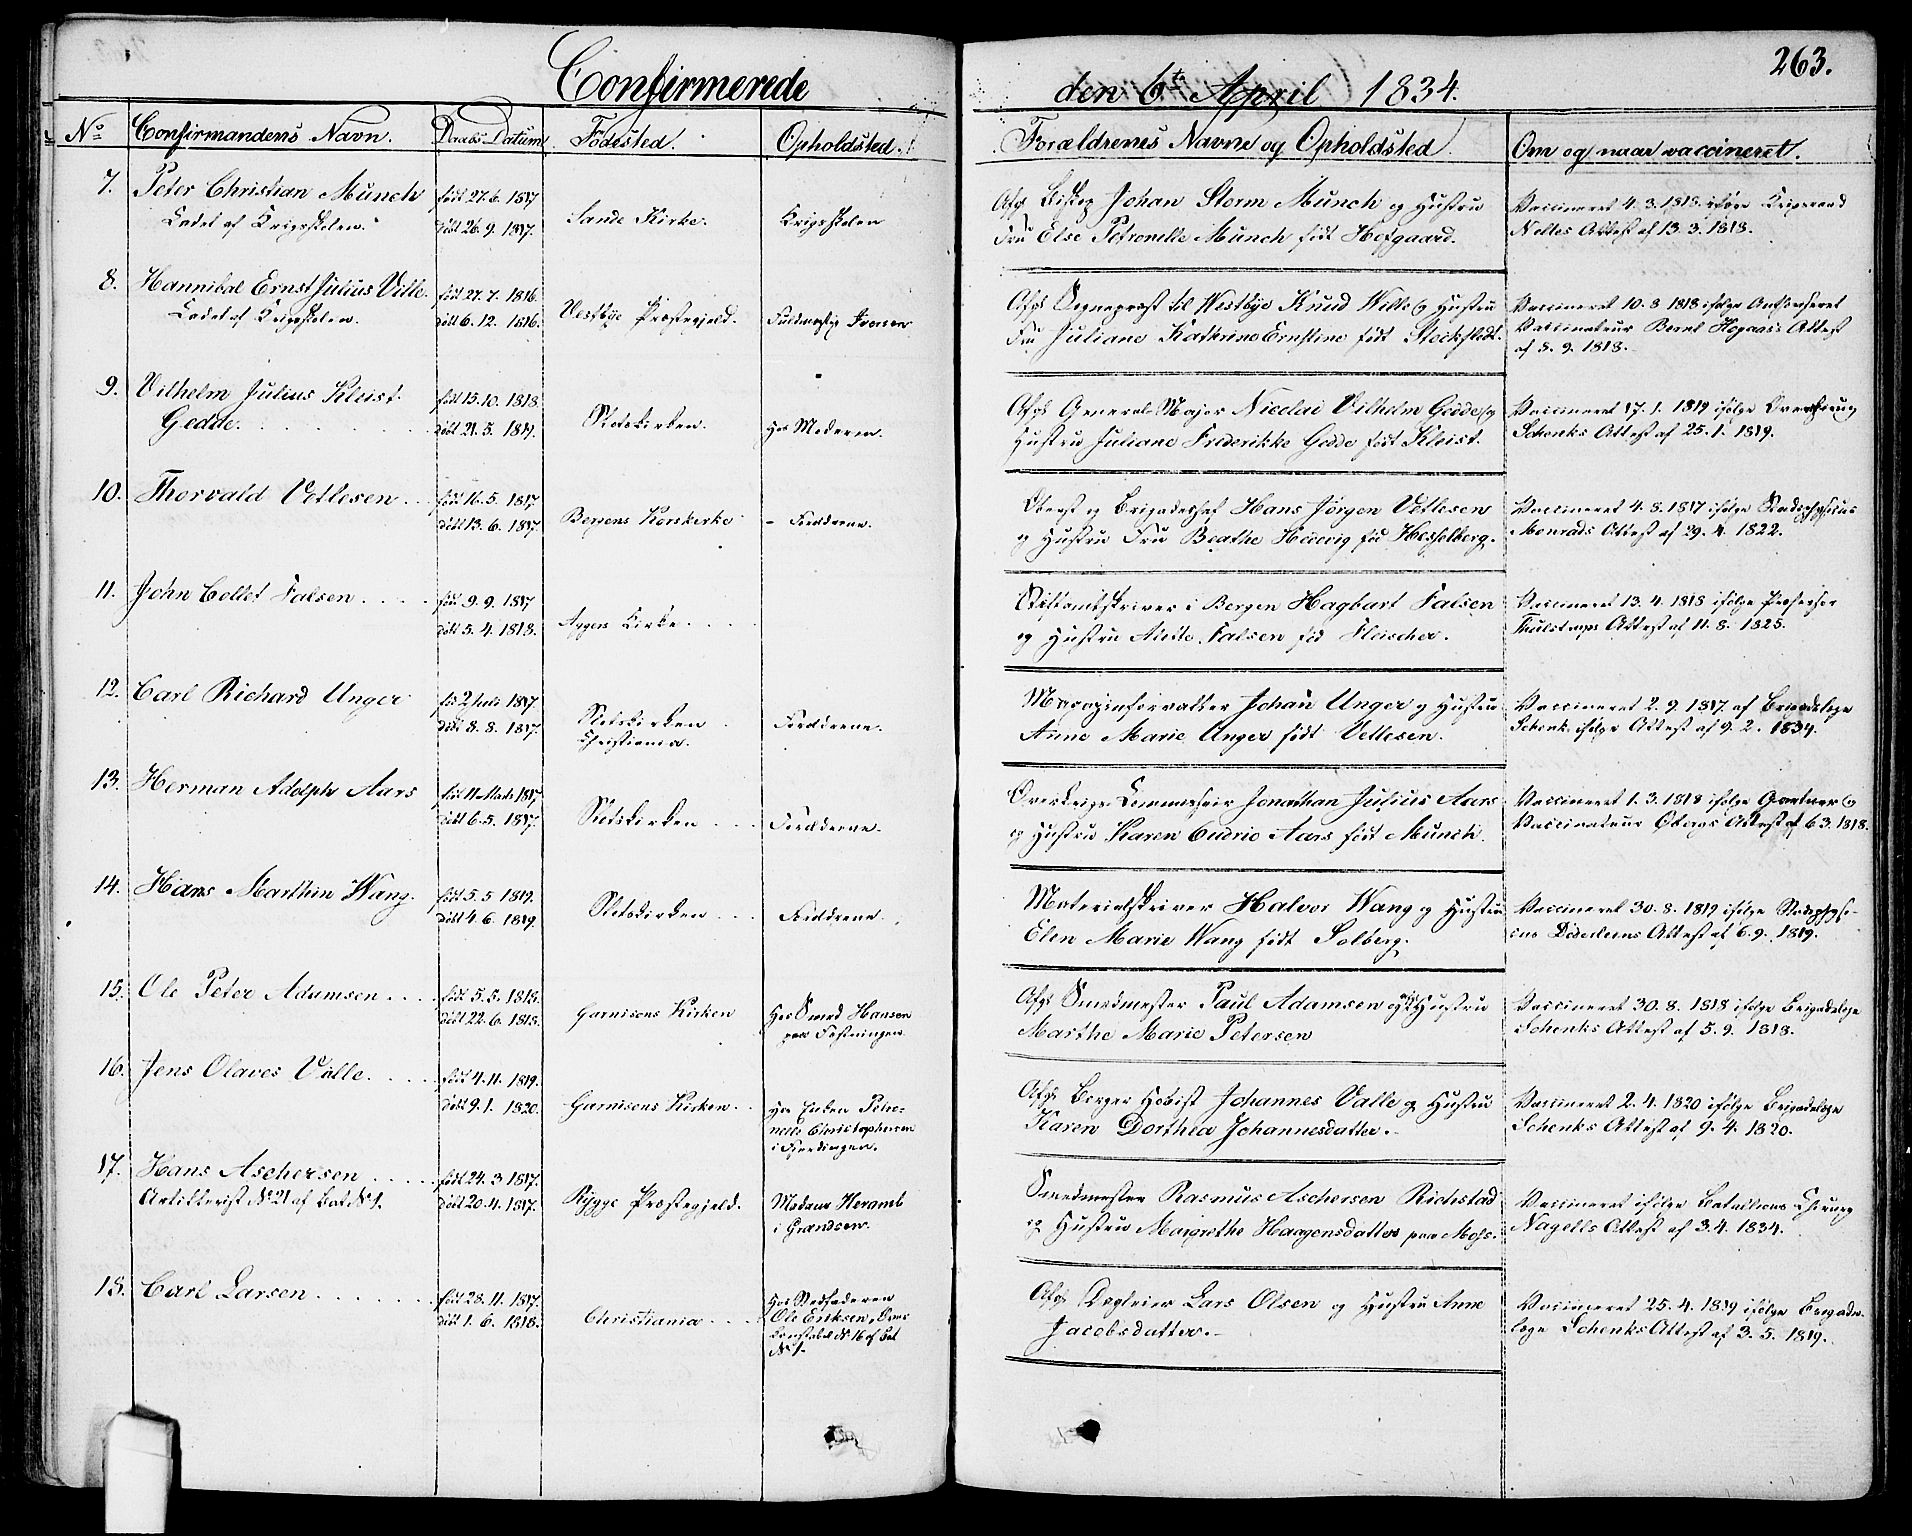 263.
Confirmerede den 6te April 1834.
No Confirmandens Navn. Daabs-Datum Födested. Opholdsted. Forældrenes Navne og Opholdsted. Om og naar vaccineret.
7. Peter Christian Munch födt 27. 6. 1817 Afg. Biskop Johan Storm Munch og Hustru Vaccineret 4. 3. 1818
Cadet af Krigsskolen. döbt 26. 9. 1817. Sande Kirke. Krigsskolen Fru Else Petronelle Munch födt Hofgaard. Attest af 13. 3. 1818.
8. Hannibal Ernst Julius Wille. födt 27. 7. 1816. Afg. Sogneprest til Westbye Knud Wille og Hustru Vaccineret 10. 8. 1818 ifölge Authoriseret
Cadet af Krigsskolen. döbt 6. 12. 1816. Vestbye Præstegjeld. Fuldmægtig Iversen Fru Juliane Kathrine Ernstine födt Stockfledt. Vaccinateur Bernt Hogaas's Attest
af 8. 9. 1818.
9. Vilhelm Julius Kleist födt 15. 10. 1818. Afg. General-Major Nicolai Vilhelm Gedde og Vaccineret 17. 1. 1819 ifölge
Gedde. döbt 21. 5. 1819. Slotskirken. Hos Moderen. Hustru Juliane Frederikke Gedde födt Kleist. Schenks Attest af 25. 1. 1819.
10. Thorvald Vetlesen födt 16. 5. 1817. Oberst og Brigadechef Hans Jörgen Vetlesen Vaccineret 4. 8. 1817 ifölge Stadsphysicus
döbt 13. 6. 1817. Bergens Korskirke - Forældrene. og Hustru Fru Beathe Hedevig föd Hesselberg. Monrads Attest af 29. 4. 1822.
11. John Collet Falsen födt 9. 9. 1817 Stiftamtskriver i Bergen Hagbart Falsen Vaccineret 13. 4. 1818 ifölge Professor
döbt 5. 4. 1818. Aggers Kirke. og Hustru Falsen föd Fleischer. Thulstrups Attest af 11. 8. 1825.
12. Carl Richard Unger föd 2 Juli 1817. Magazinforvalter Johan Unger og Hustru Vaccineret 2. 9. 1817. af Brigadelæge
döbt 8. 8. 1817. Slotskirken Forældrene. Anne Marie Unger födt Vetlesen. Schenk ifölge Attest af 9. 2. 1834.
Christiania.
13. Herman Adolph Aars föd 11 Marts 1817 Overkrigs Commissair Jonathan Julius Aars Vaccineret 1. 3. 1818 ifölge Gartner og
döbt 6. 5. 1817. Slotskirken Forældrene. og Hustru Karen Cudrio Aars födt Munch. Vaccinateur Öbergs Attest af 6 3. 1818.
14. Hans Marthin Wang. födt 5. 5 1819. Materialskriver Halvor Wang og Hustru Vaccineret 30. 8. 1819 ifölge Stadsphysi-
döbt 4. 6. 1819. Slotskirken Forældrene. Elen Marie Wang födt Solberg. cus Attest af 6. 9. 1819.
15. Ole Peter Adamsen födt 5. 5. 1818. Afg. Smedmester Paul Adamsen og Hustru Vaccineret 30. 8. 1818 ifölge Brigadelæge
döbt 22. 6. 1818. Garnisons Kirken Hos Smed Hansen Marthe Marie Petersen Schenks Attest af 5. 9. 1818.
paa Fæstningen.
16. Jens Olaves Valle. födt 4. 11. 1819. Afg. Borger Johannes Valle og Hustru Vaccineret 2. 4. 1820 ifölge Brigadelæge
döbt 9. 1. 1820. Garnisons Kirken. Hos Enken Petro- Karen Dorthea Johannesdatter. Schenks Attest af 9. 4. 1820.
nelle Christophersen
i Fjerdingen.
17. Hans Aschersen födt 24. 3 1817. Smedmester Rasmus Aschersen Richstad Vaccineret ifölge Batallions Chirurg
Artillerist No 21 af Bat. No 1. döbt 20. 4. 1817. Rygge Præstegjeld. Madame Heramb og Hustru Margrethe Haagensdatter paa Moss. Nagells Attest af 3. 4. 1834.
i Grændsen.
18. Carl Larsen födt 28. 11. 1817. Hos Stedfaderen Afg. Dagleier Lars Olsen og Hustru Anne Vaccineret 25. 4. 1819 ifölge Brigade-
döbt 1. 6. 1818. Christiania Ole Eriksen, Jacobsdatter. læge Schenks Attest af 3. 5. 1819.
No 16 af Bat
No 1.